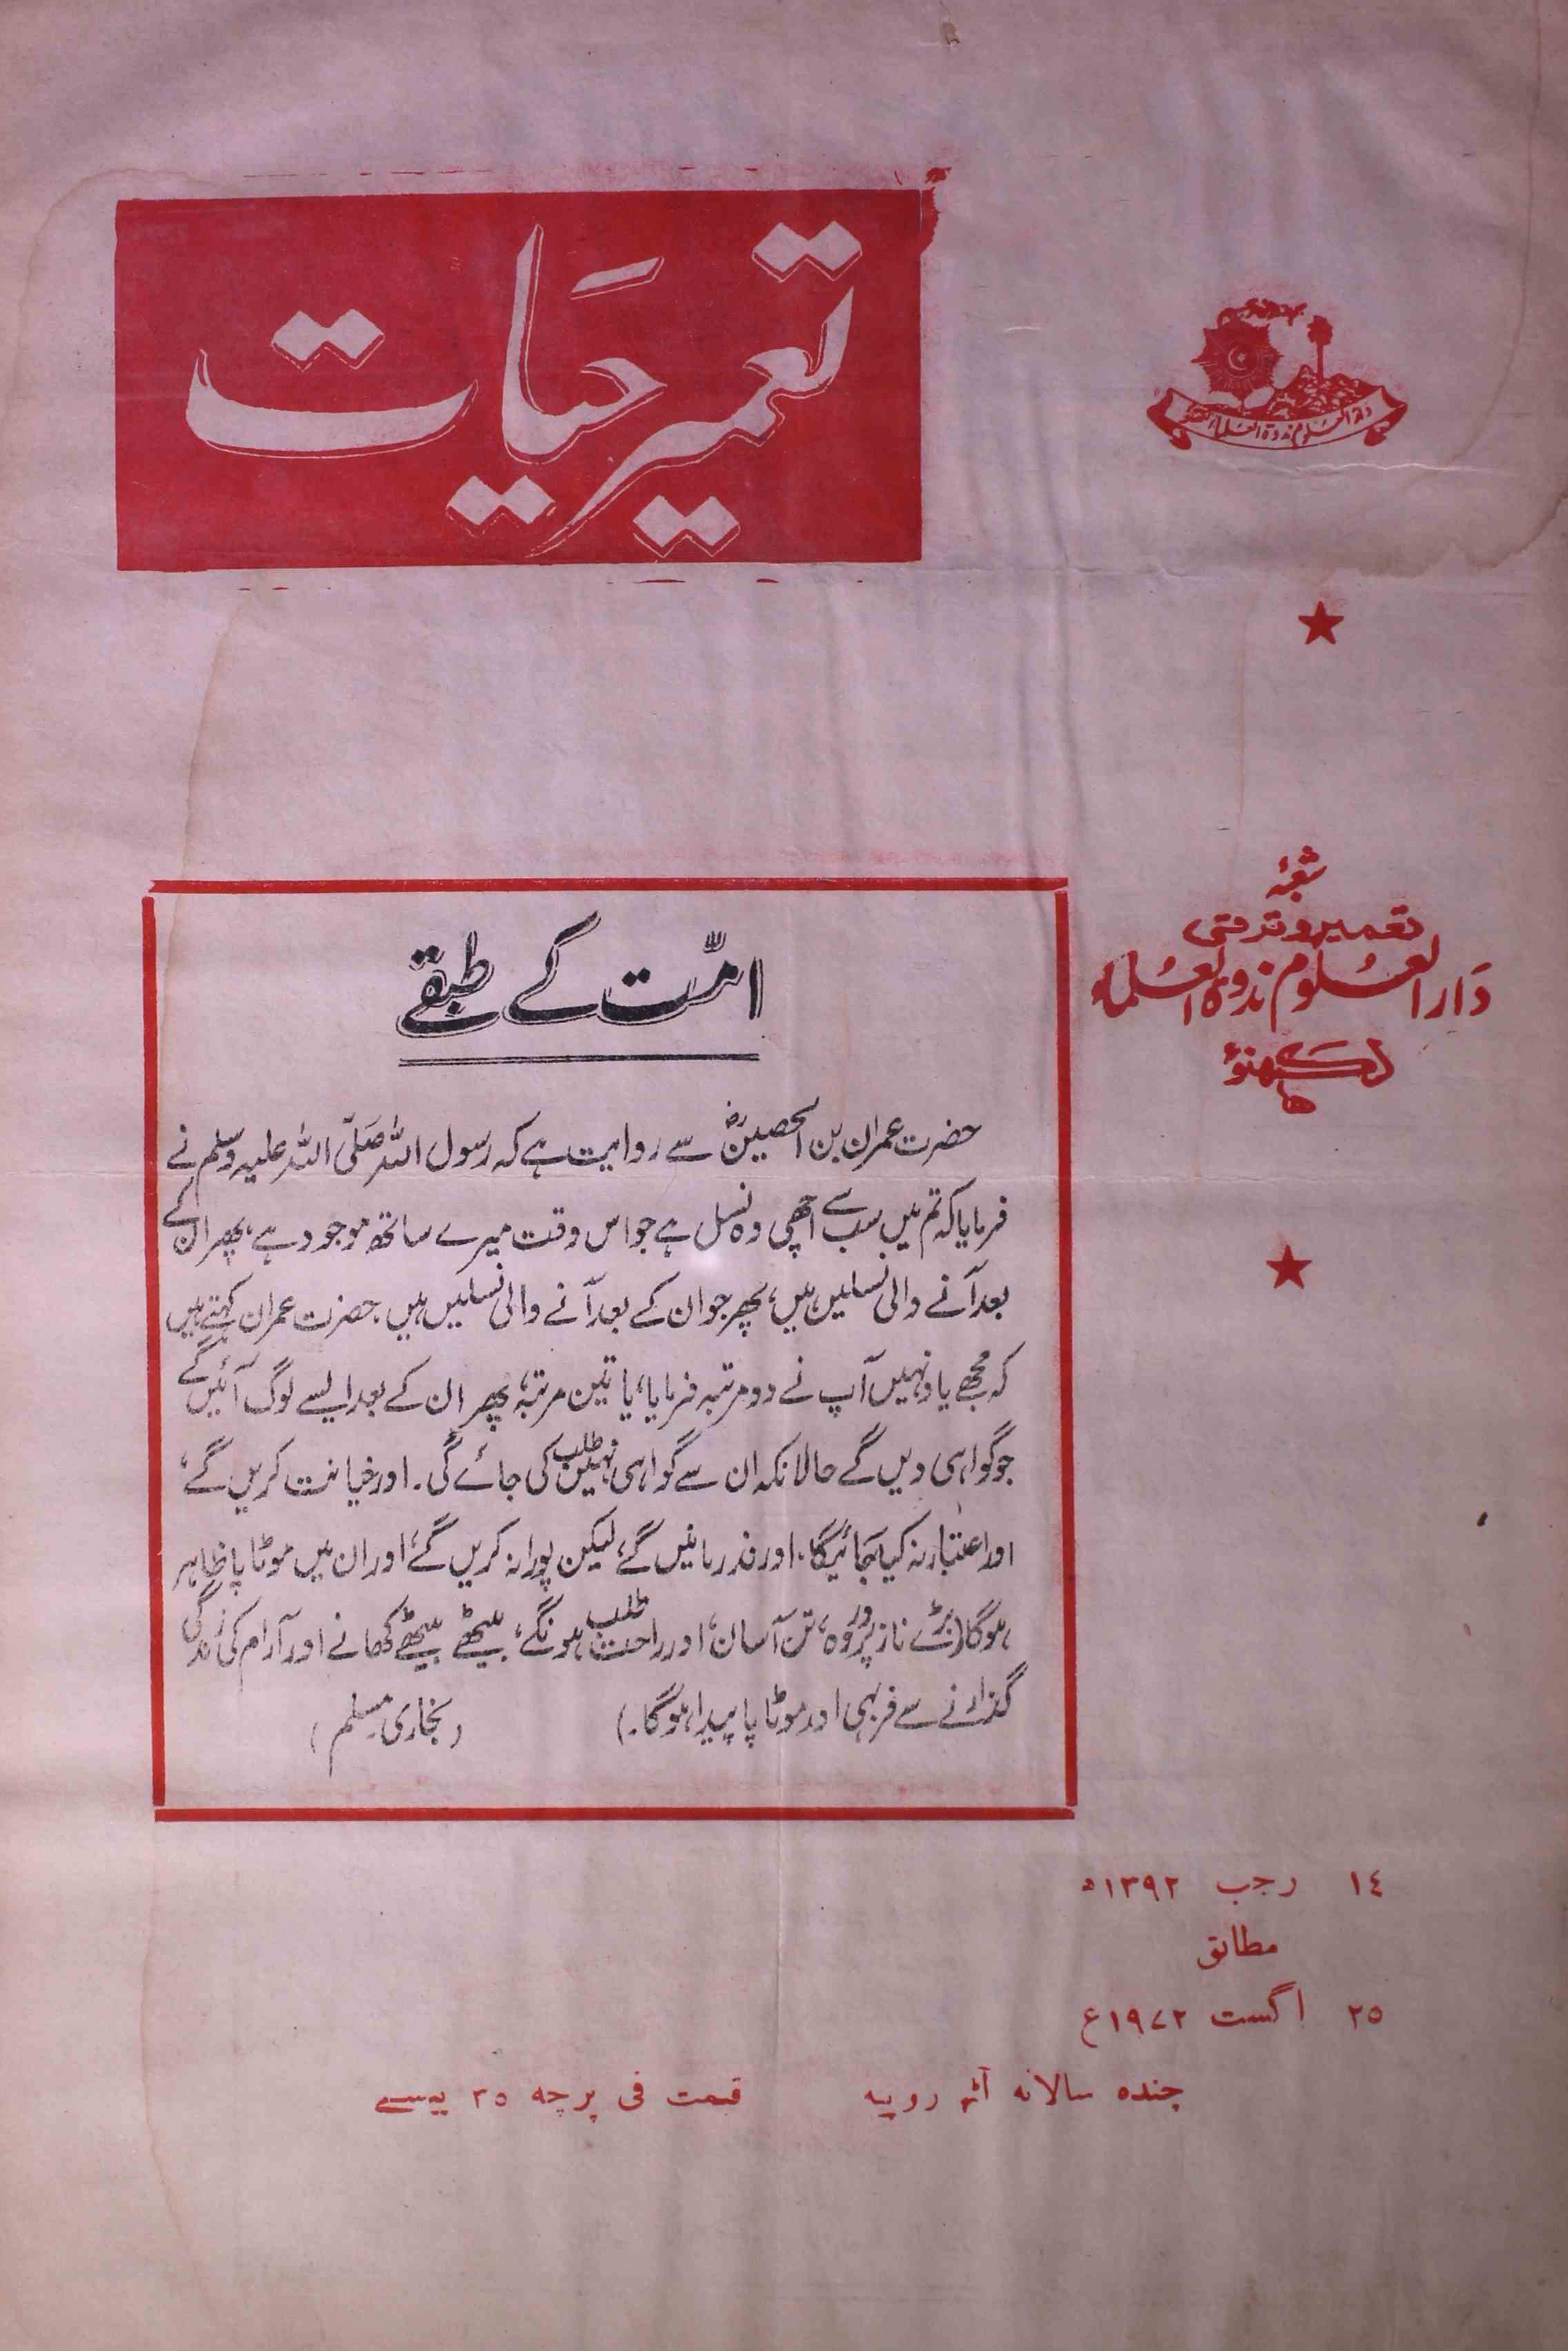 تعمیر حیات
دار العلوم ندوۃ العلماء
شعبۂ
تعمیر و ترقی
دار العلوم ندوۃ العلماء
لکھنؤ
امّت کے طبقے
حضرت عمران بن الحصینؓ سے روایت ہے کہ رسول اللہ صَلّی اللہ علیہ وسلم نے
فرمایا کہ تم میں سب سے اچھی وہ نسل ہے جو اس وقت میرے ساتھ موجود ہے، پھر ان کے
بعد آنے والی نسلیں ہیں، پھر جو ان کے بعد آنے والی نسلیں ہیں۔ حضرت عمران کہتے ہیں
کہ مجھے یاد نہیں آپ نے دو مرتبہ فرمایا، یا تین مرتبہ، پھر ان کے بعد ایسے لوگ آئیں گے
جو گواہی دیں گے حالانکہ ان سے گواہی نہیں طلب کی جائے گی۔ اور خیانت کریں گے،
اور اعتبار نہ کیا جائیگا، اور نذر مانیں گے، لیکن پورا نہ کریں گے، اور ان میں موٹاپا ظاہر
ہوگا (بڑے ناز پروردہ، تن آسان، اور راحت طلب ہونگے، بیٹھے بیٹھے کھانے اور آرام کی زندگی
گذارنے سے فربہی اور موٹاپا پیدا ہوگا۔) (بخاری مسلم)
١٤ رجب ١٣٩٢ھ
مطابق
٢٥ اگست ١٩٧٢ع
چندہ سالانہ آٹھ روپیہ قیمت فی پرچہ ٣٥ پیسے